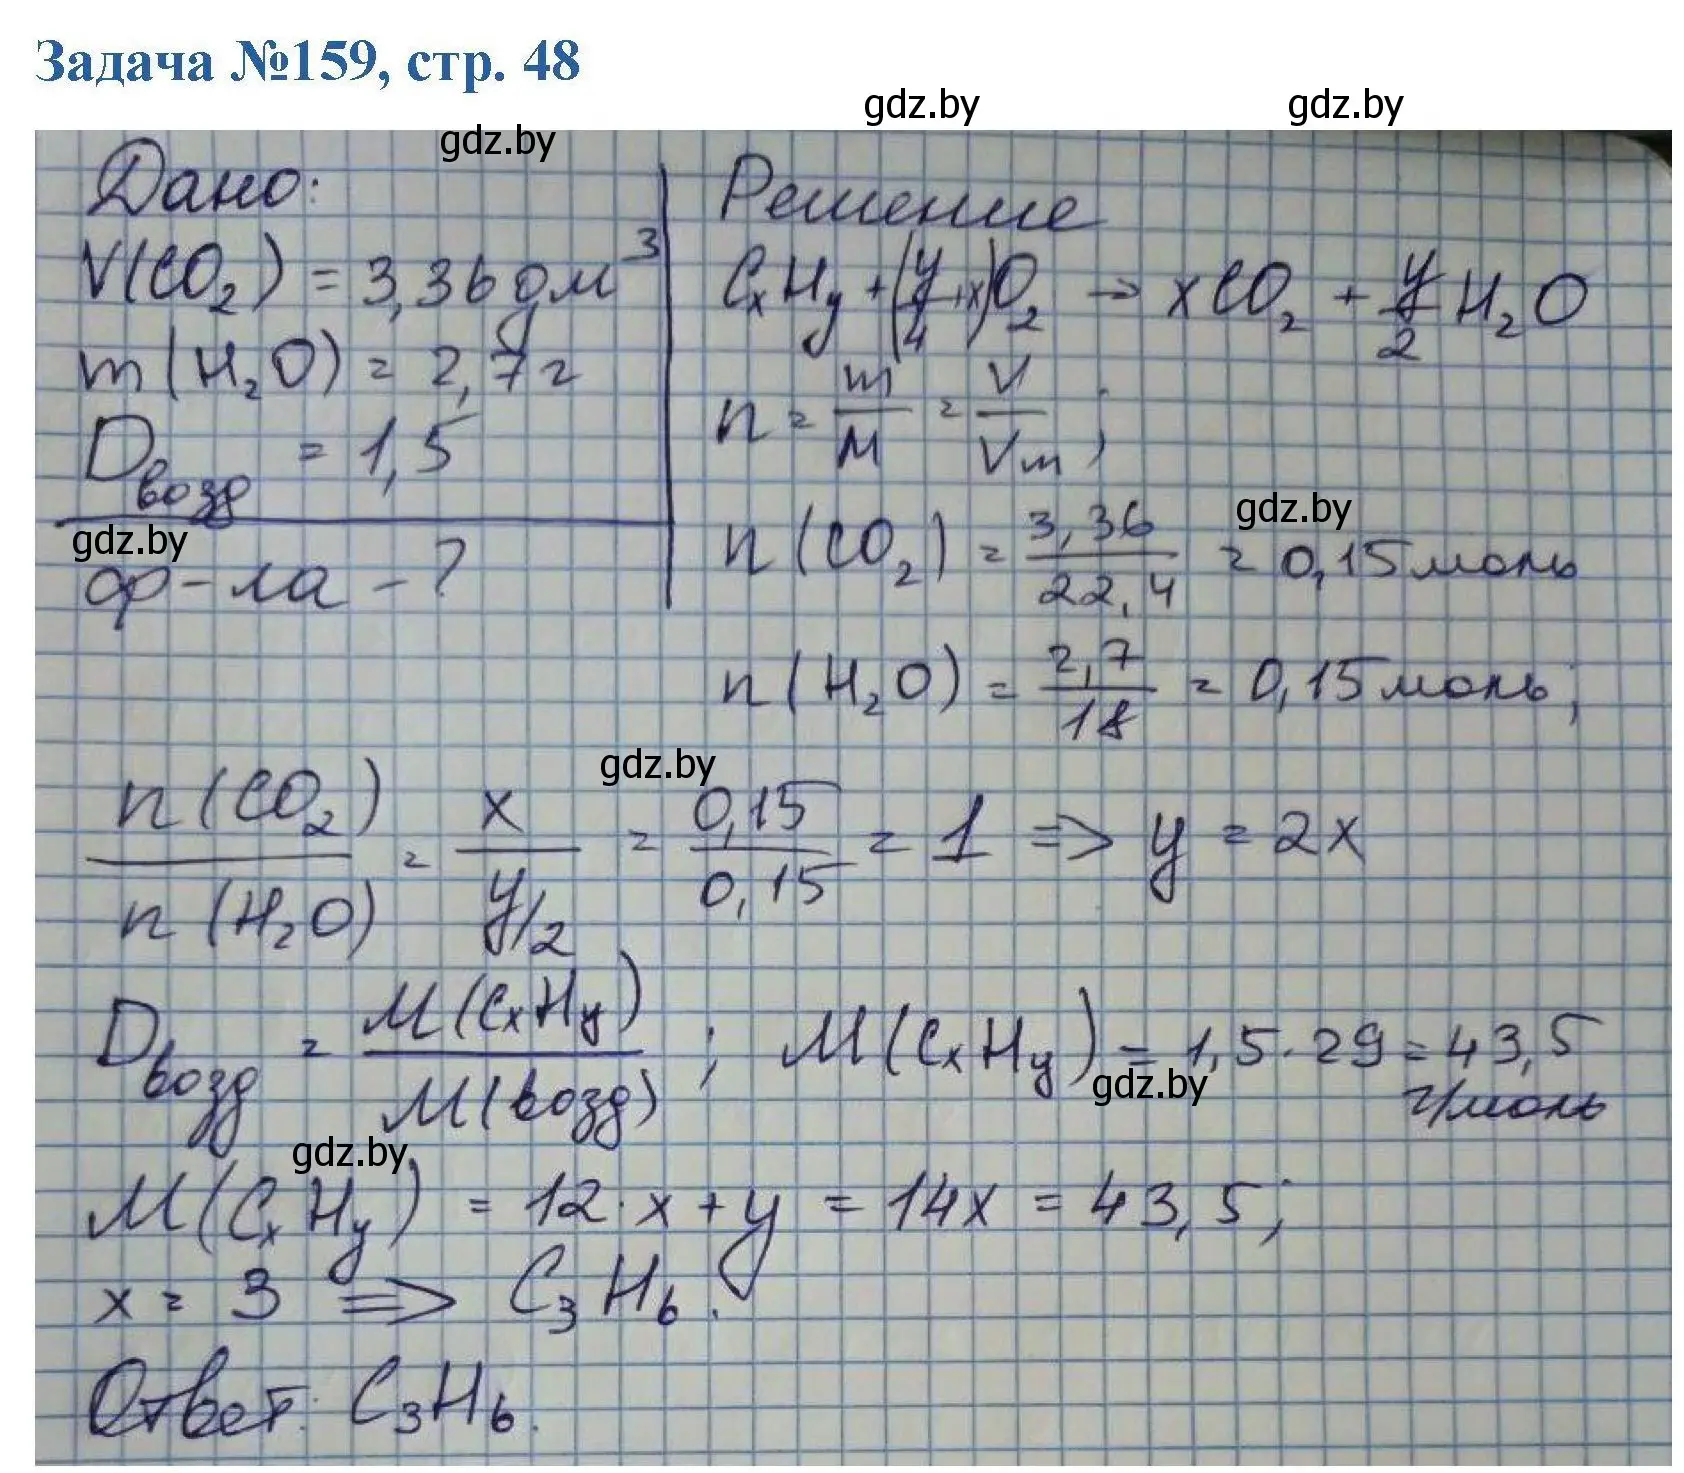 Задача №159, стр. 48
gdz.by gdz.by
gdz.by
Дано:
V(CO₂) = 3,36 дм³
m(H₂O) = 2,7 г
Dвозд = 1,5
gdz.by
ф-ла - ?
Решение
CxHy + (y/4 + x)O₂ → xCO₂ + y/2 H₂O
n = m/M = V/Vm ;
gdz.by
n(CO₂) = 3,36/22,4 = 0,15 моль
n(H₂O) = 2,7/18 = 0,15 моль;
gdz.by
n(CO₂)/n(H₂O) = x/(y/2) = 0,15/0,15 = 1 => y = 2x
Dвозд = M(CxHy)/M(возд) ; M(CxHy) = 1,5·29 = 43,5 г/моль
gdz.by
gdz.by
M(CxHy) = 12·x + y = 14x = 43,5;
x = 3 => C₃H₆.
Ответ: C₃H₆.